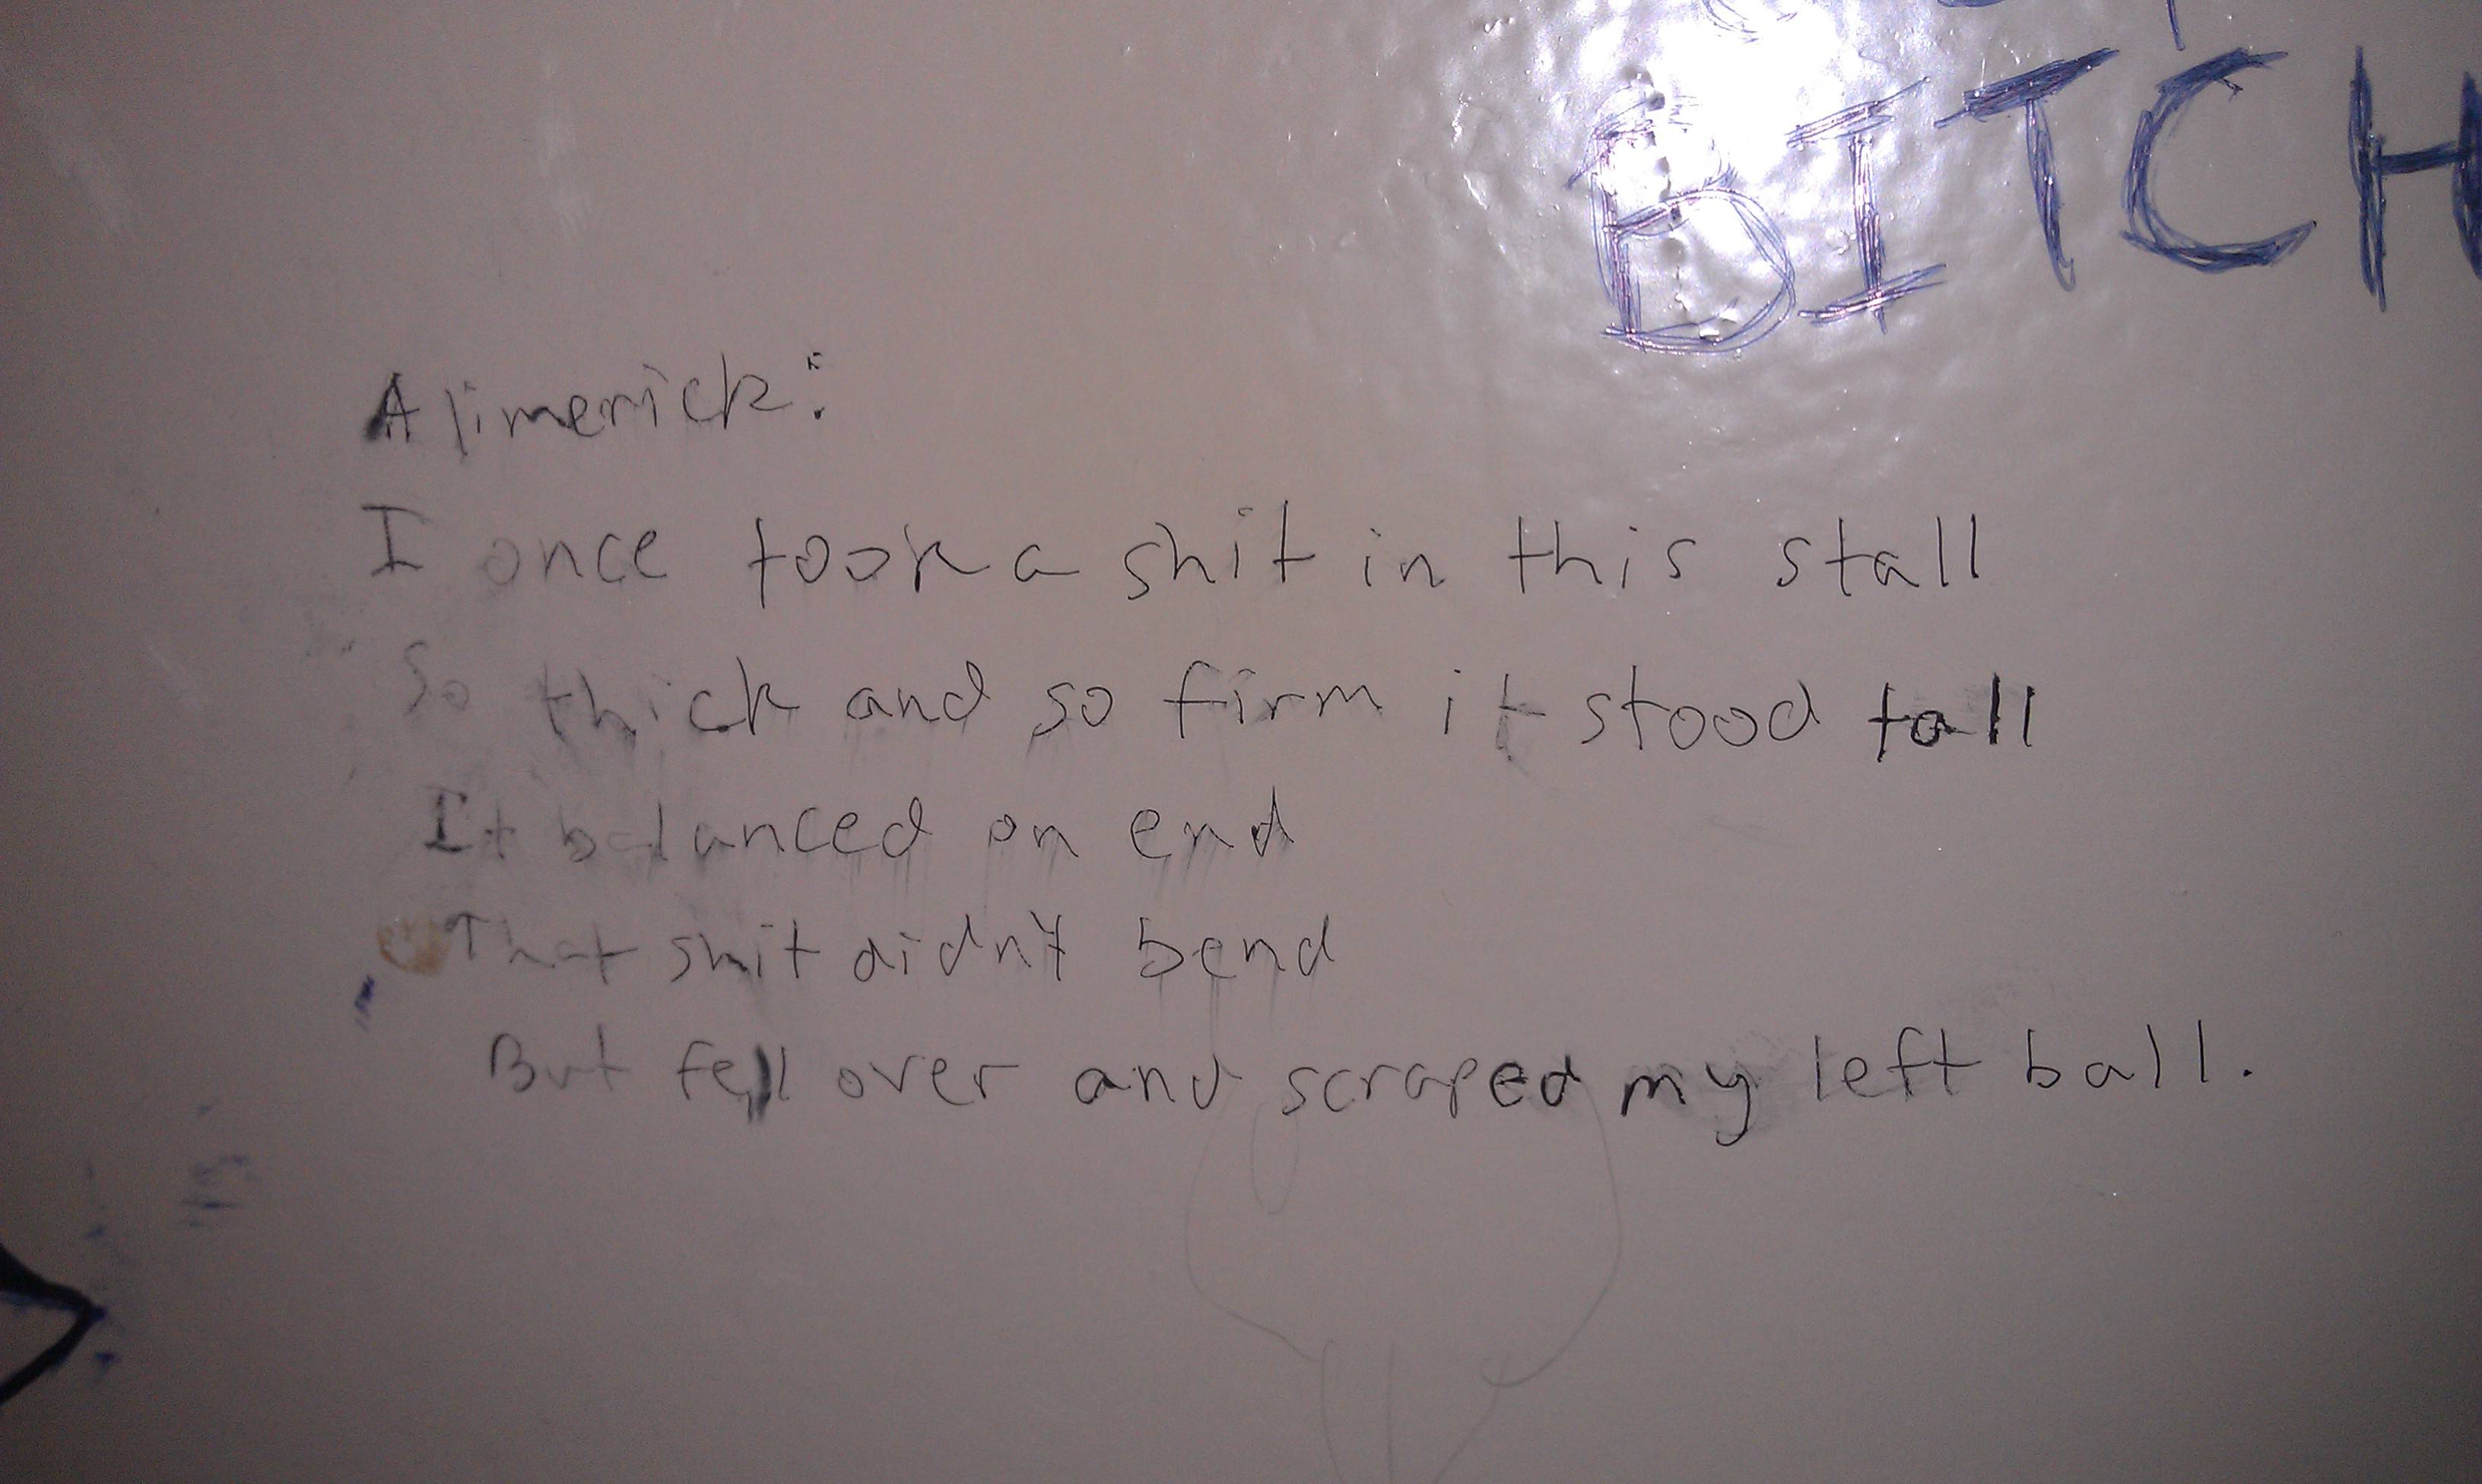 BITCH
A limerick:
I once took a shit in this stall
So thick and so firm it stood tall
It balanced on end
That shit didn't bend
But fell over and scraped my left ball.